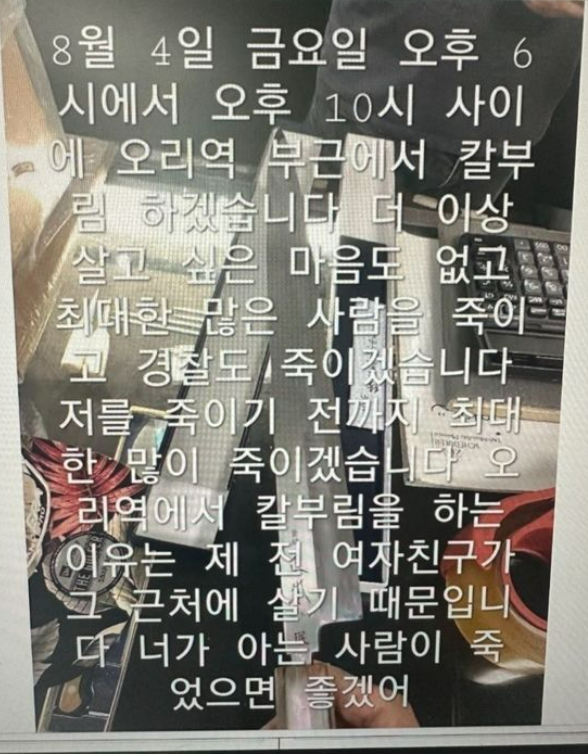 8월 4일 금요일 오후 6
시에서 오후 10시 사이
에 오리역 부근에서 칼부
림 하겠습니다 더 이상
살고 싶은 마음도 없고
최대한 많은 사람을 죽이
고 경찰도 죽이겠습니다
저를 죽이기 전까지 최대
한 많이 죽이겠습니다 오
리역에서 칼부림을 하는
이유는 제 전 여자친구가
그 근처에 살기 때문입니
다 너가 아는 사람이 죽
었으면 좋겠어